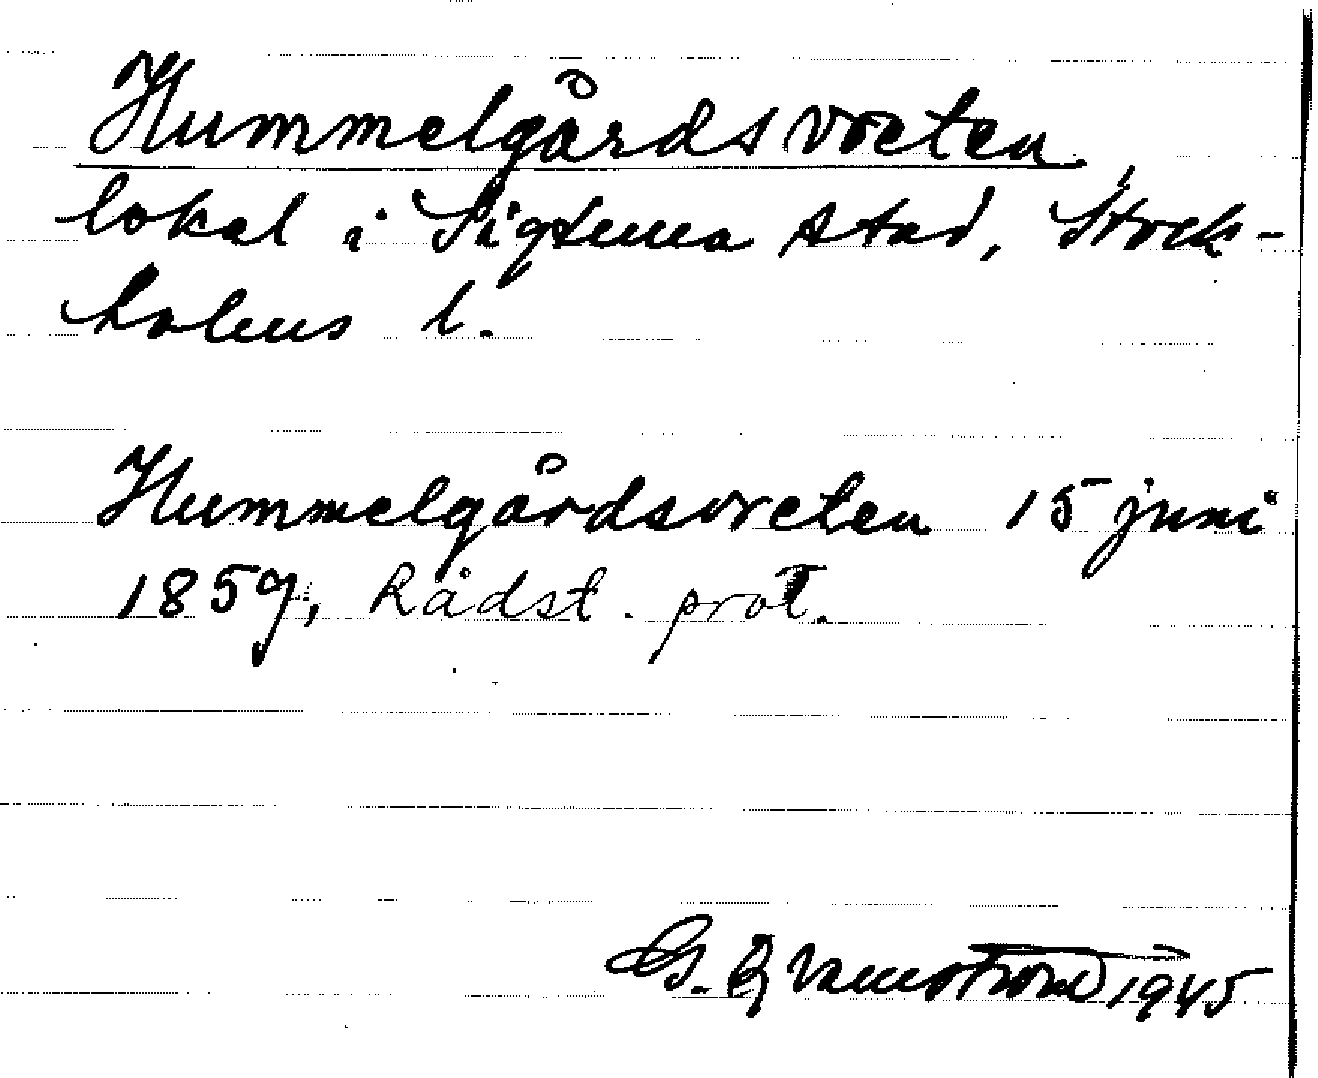 Hummelgårdsvreten
lokal i Sigtuna stad, Stock-
holms l.
Hummelgårdsvreten 15 juni
1859, Rådst. prot.
G. Qvarnström 1945